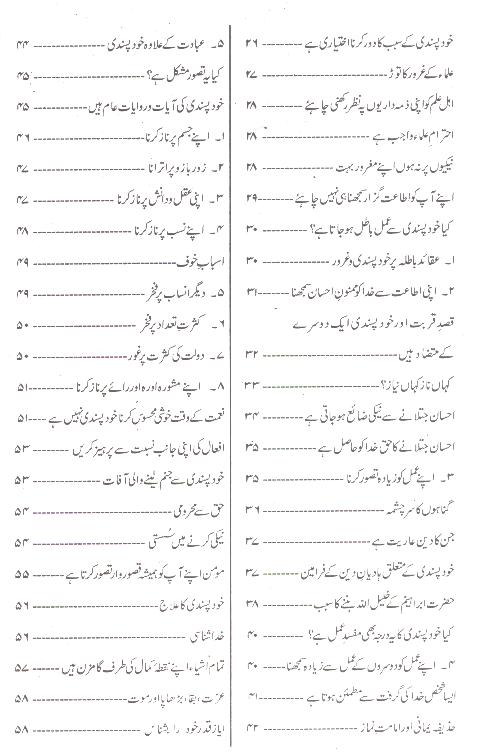 خود پسندی کے سبب کا دور کرنا اختیاری ہے ---------- ۲۶
علماء کے غرور کا توڑ ---------- ۲۷
اہل علم کو اپنی ذمہ داریوں پہ نظر رکھنی چاہئے ---------- ۲۸
احترام علماء واجب ہے ---------- ۲۸
نیکیوں پر نہ ہوں اپنے مغرور بہت ---------- ۲۸
اپنے آپ کو اطاعت گزار سمجھنا ہی نہیں چاہئے ---------- ۲۹
کیا خود پسندی سے عمل باطل ہو جاتا ہے؟ ---------- ۳۰
۱۔ عقائد باطلہ پر خود پسندی و غرور ---------- ۳۰
۲۔ اپنی اطاعت سے خدا کو ممنونِ احسان سمجھنا ---------- ۳۱
قصدِ قربت اور خود پسندی ایک دوسرے
کے متضاد ہیں ---------- ۳۲
کہاں ناز کہاں نیاز؟ ---------- ۳۳
احسان جتلانے سے نیکی ضائع ہو جاتی ہے ---------- ۳۴
احسان جتلانے کا حق خدا کو حاصل ہے ---------- ۳۵
۳۔ اپنے عمل کو زیادہ تصور کرنا ---------- ۳۵
گناہوں کا سرچشمہ ---------- ۳۶
جن کا دین عاریت ہے ---------- ۳۷
خود پسندی کے متعلق ہادیان دین کے فرامین ---------- ۳۷
حضرت ابراہیمؑ کے خلیل اللہ بننے کا سبب ---------- ۳۸
کیا خود پسندی کا یہ درجہ بھی مفسد عمل ہے؟ ---------- ۴۰
۴۔ اپنے عمل کو دوسروں کے عمل سے زیادہ سمجھنا ---------- ۴۰
ایسا شخص خدا کی گرفت سے مطمئن ہوتا ہے ---------- ۴۱
حذیفہ یمانی اور امامت نماز ---------- ۴۲
۵۔ عبادت کے علاوہ خود پسندی ---------- ۴۴
کیا یہ تصور مشکل ہے؟ ---------- ۴۵
خود پسندی کی آیات و روایات عام ہیں ---------- ۴۵
۱۔ اپنے جسم پر ناز کرنا ---------- ۴۶
۲۔ زور بازو پر اترانا ---------- ۴۷
۳۔ اپنی عقل و دانش پر ناز کرنا ---------- ۴۷
۴۔ اپنے نسب پر ناز کرنا ---------- ۴۸
اسبابِ خوف ---------- ۴۹
۵۔ دیگر انساب پر فخر ---------- ۴۹
۶۔ کثرتِ تعداد پر فخر ---------- ۵۰
۷۔ دولت کی کثرت پر غرور ---------- ۵۰
۸۔ اپنے مشورہ اور رائے پر ناز کرنا ---------- ۵۱
نعمت کے وقت خوشی محسوس کرنا خود پسندی نہیں ہے ---------- ۵۱
افعال کی اپنی جانب نسبت سے پرہیز کریں ---------- ۵۳
خود پسندی سے جنم لینے والی آفات ---------- ۵۳
حق سے محرومی ---------- ۵۴
نیکی کرنے میں سُستی ---------- ۵۴
مومن اپنے آپ کو ہمیشہ قصور وار تصور کرتا ہے ---------- ۵۵
خود پسندی کا علاج ---------- ۵۶
خدا شناسی ---------- ۵۶
تمام اشیاء اپنے نقطۂ کمال کی طرف گامزن ہیں ---------- ۵۷
عزت، بقاء، بڑھاپا اور موت ---------- ۵۸
ایاز قدر خود را بشناس ---------- ۵۸